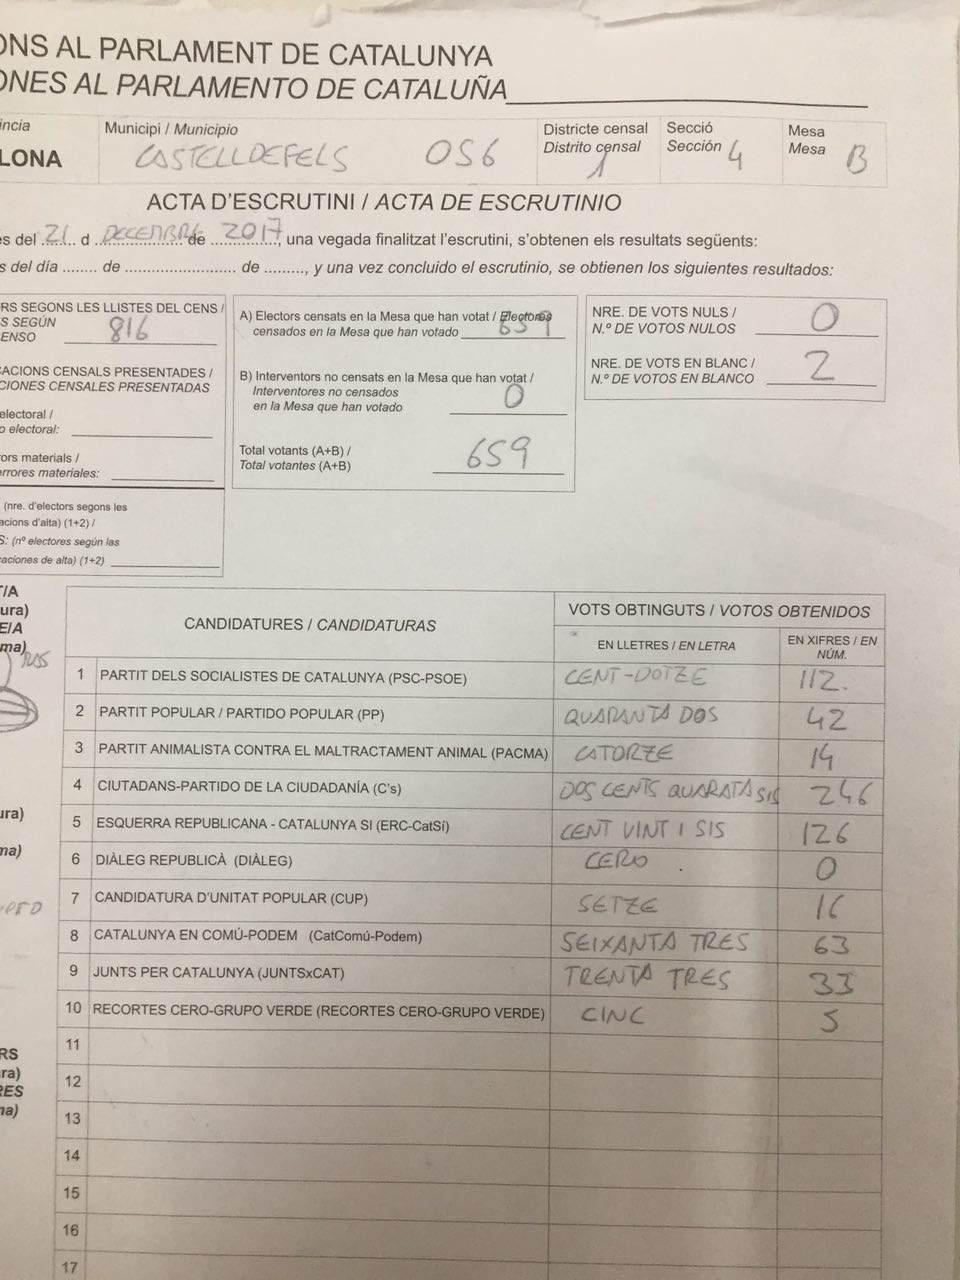 ONS AL PARLAMENT DE CATALUNYA
ONES AL PARLAMENTO DE CATALUÑA
íncia
LONA
Municipi / Municipio
CASTELLDEFELS 056
Districte censal
Distrito censal
1
Secció
Sección 4
Mesa
Mesa B
ACTA D'ESCRUTINI / ACTA DE ESCRUTINIO
s del 21 d DECEMBRE de 2017, una vegada finalitzat l'escrutini, s'obtenen els resultats següents:
s del día ........ de .......................... de ........., y una vez concluido el escrutinio, se obtienen los siguientes resultados:
RS SEGONS LES LLISTES DEL CENS /
S SEGÚN
ENSO 816
CACIONS CENSALS PRESENTADES /
CIONES CENSALES PRESENTADAS
electoral /
o electoral:
ors materials /
errores materiales:
(nre. d'electors segons les
acions d'alta) (1+2) /
S: (nº electores según las
caciones de alta) (1+2)
A) Electors censats en la Mesa que han votat / Electores
censados en la Mesa que han votado 659
B) Interventors no censats en la Mesa que han votat /
Interventores no censados
en la Mesa que han votado 0
Total votants (A+B) /
Total votantes (A+B) 659
NRE. DE VOTS NULS /
N.º DE VOTOS NULOS 0
NRE. DE VOTS EN BLANC /
N.º DE VOTOS EN BLANCO 2
T/A
ura)
E/A
ma)
ura)
ma)
RS
ra)
RES
ma)
CANDIDATURES / CANDIDATURAS
VOTS OBTINGUTS / VOTOS OBTENIDOS
EN LLETRES / EN LETRA
EN XIFRES / EN NÚM.
1 PARTIT DELS SOCIALISTES DE CATALUNYA (PSC-PSOE) CENT-DOTZE 112.
2 PARTIT POPULAR / PARTIDO POPULAR (PP) QUARANTA DOS 42
3 PARTIT ANIMALISTA CONTRA EL MALTRACTAMENT ANIMAL (PACMA) CATORZE 14
4 CIUTADANS-PARTIDO DE LA CIUDADANÍA (C's) DOS CENTS QUARATA SIS 246
5 ESQUERRA REPUBLICANA - CATALUNYA SI (ERC-CatSí) CENT VINT I SIS 126
6 DIÀLEG REPUBLICÀ (DIÀLEG) CERO 0
7 CANDIDATURA D'UNITAT POPULAR (CUP) SETZE 16
8 CATALUNYA EN COMÚ-PODEM (CatComú-Podem) SEIXANTA TRES 63
9 JUNTS PER CATALUNYA (JUNTSxCAT) TRENTA TRES 33
10 RECORTES CERO-GRUPO VERDE (RECORTES CERO-GRUPO VERDE) CINC 5
11
12
13
14
15
16
17